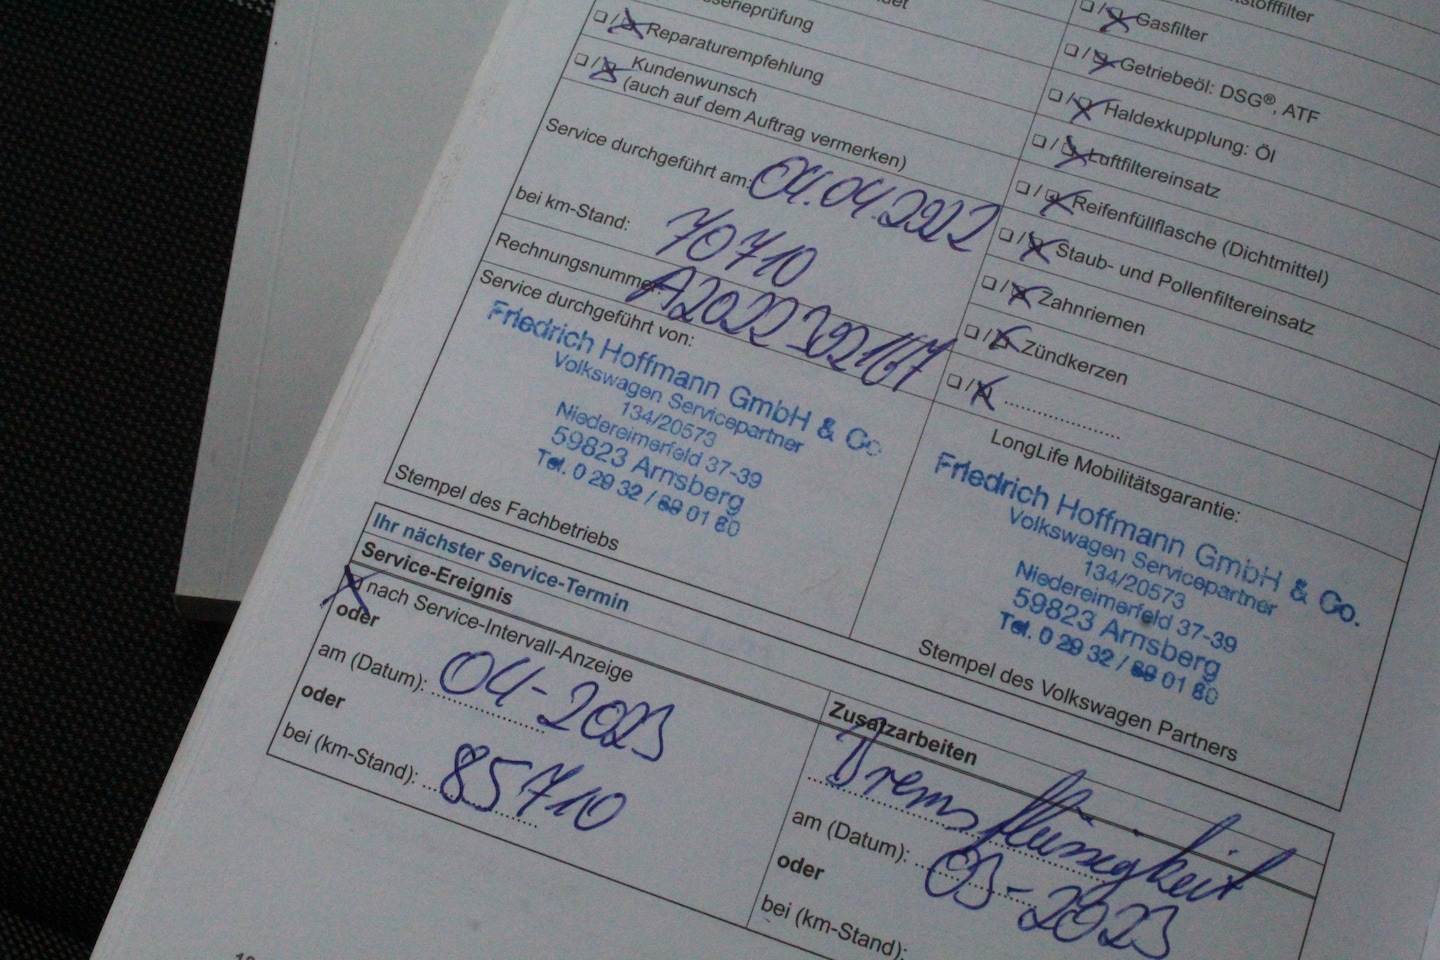 Reparaturempfehlung
Kundenwunsch
(auch auf dem Auftrag vermerken)
Service durchgeführt am: 04.04.2022
bei km-Stand: 70710
Rechnungsnummer:
Service durchgeführt von:
Friedrich Hoffmann GmbH & Co.
Volkswagen Servicepartner
134/20573
Niedereimerfeld 37-39
59823 Arnsberg
Tel. 0 29 32 / 89 01 80
Stempel des Fachbetriebs
Gasfilter
Getriebeöl: DSG®, ATF
Haldexkupplung: Öl
Luftfiltereinsatz
Reifenfüllflasche (Dichtmittel)
Staub- und Pollenfiltereinsatz
Zahnriemen
Zündkerzen
LongLife Mobilitätsgarantie:
Friedrich Hoffmann GmbH & Co.
Volkswagen Servicepartner
134/20573
Niedereimerfeld 37-39
59823 Arnsberg
Tel. 0 29 32 / 89 01 80
Stempel des Volkswagen Partners
Ihr nächster Service-Termin
Service-Ereignis
nach Service-Intervall-Anzeige
oder
am (Datum): 04-2023
oder
bei (km-Stand): 85710
Zusatzarbeiten
Bremsflüssigkeit
am (Datum): 03-2023
oder
bei (km-Stand):